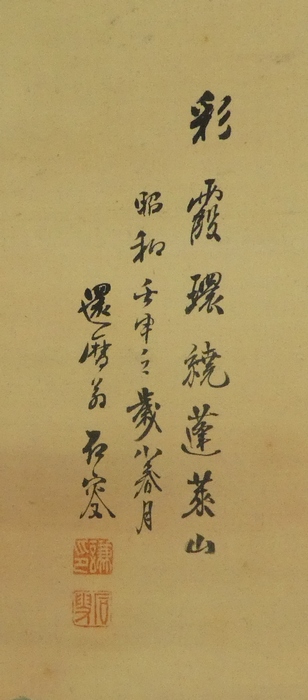 彩霞環繞蓬萊山
昭和壬申之歳小春月
還暦翁石